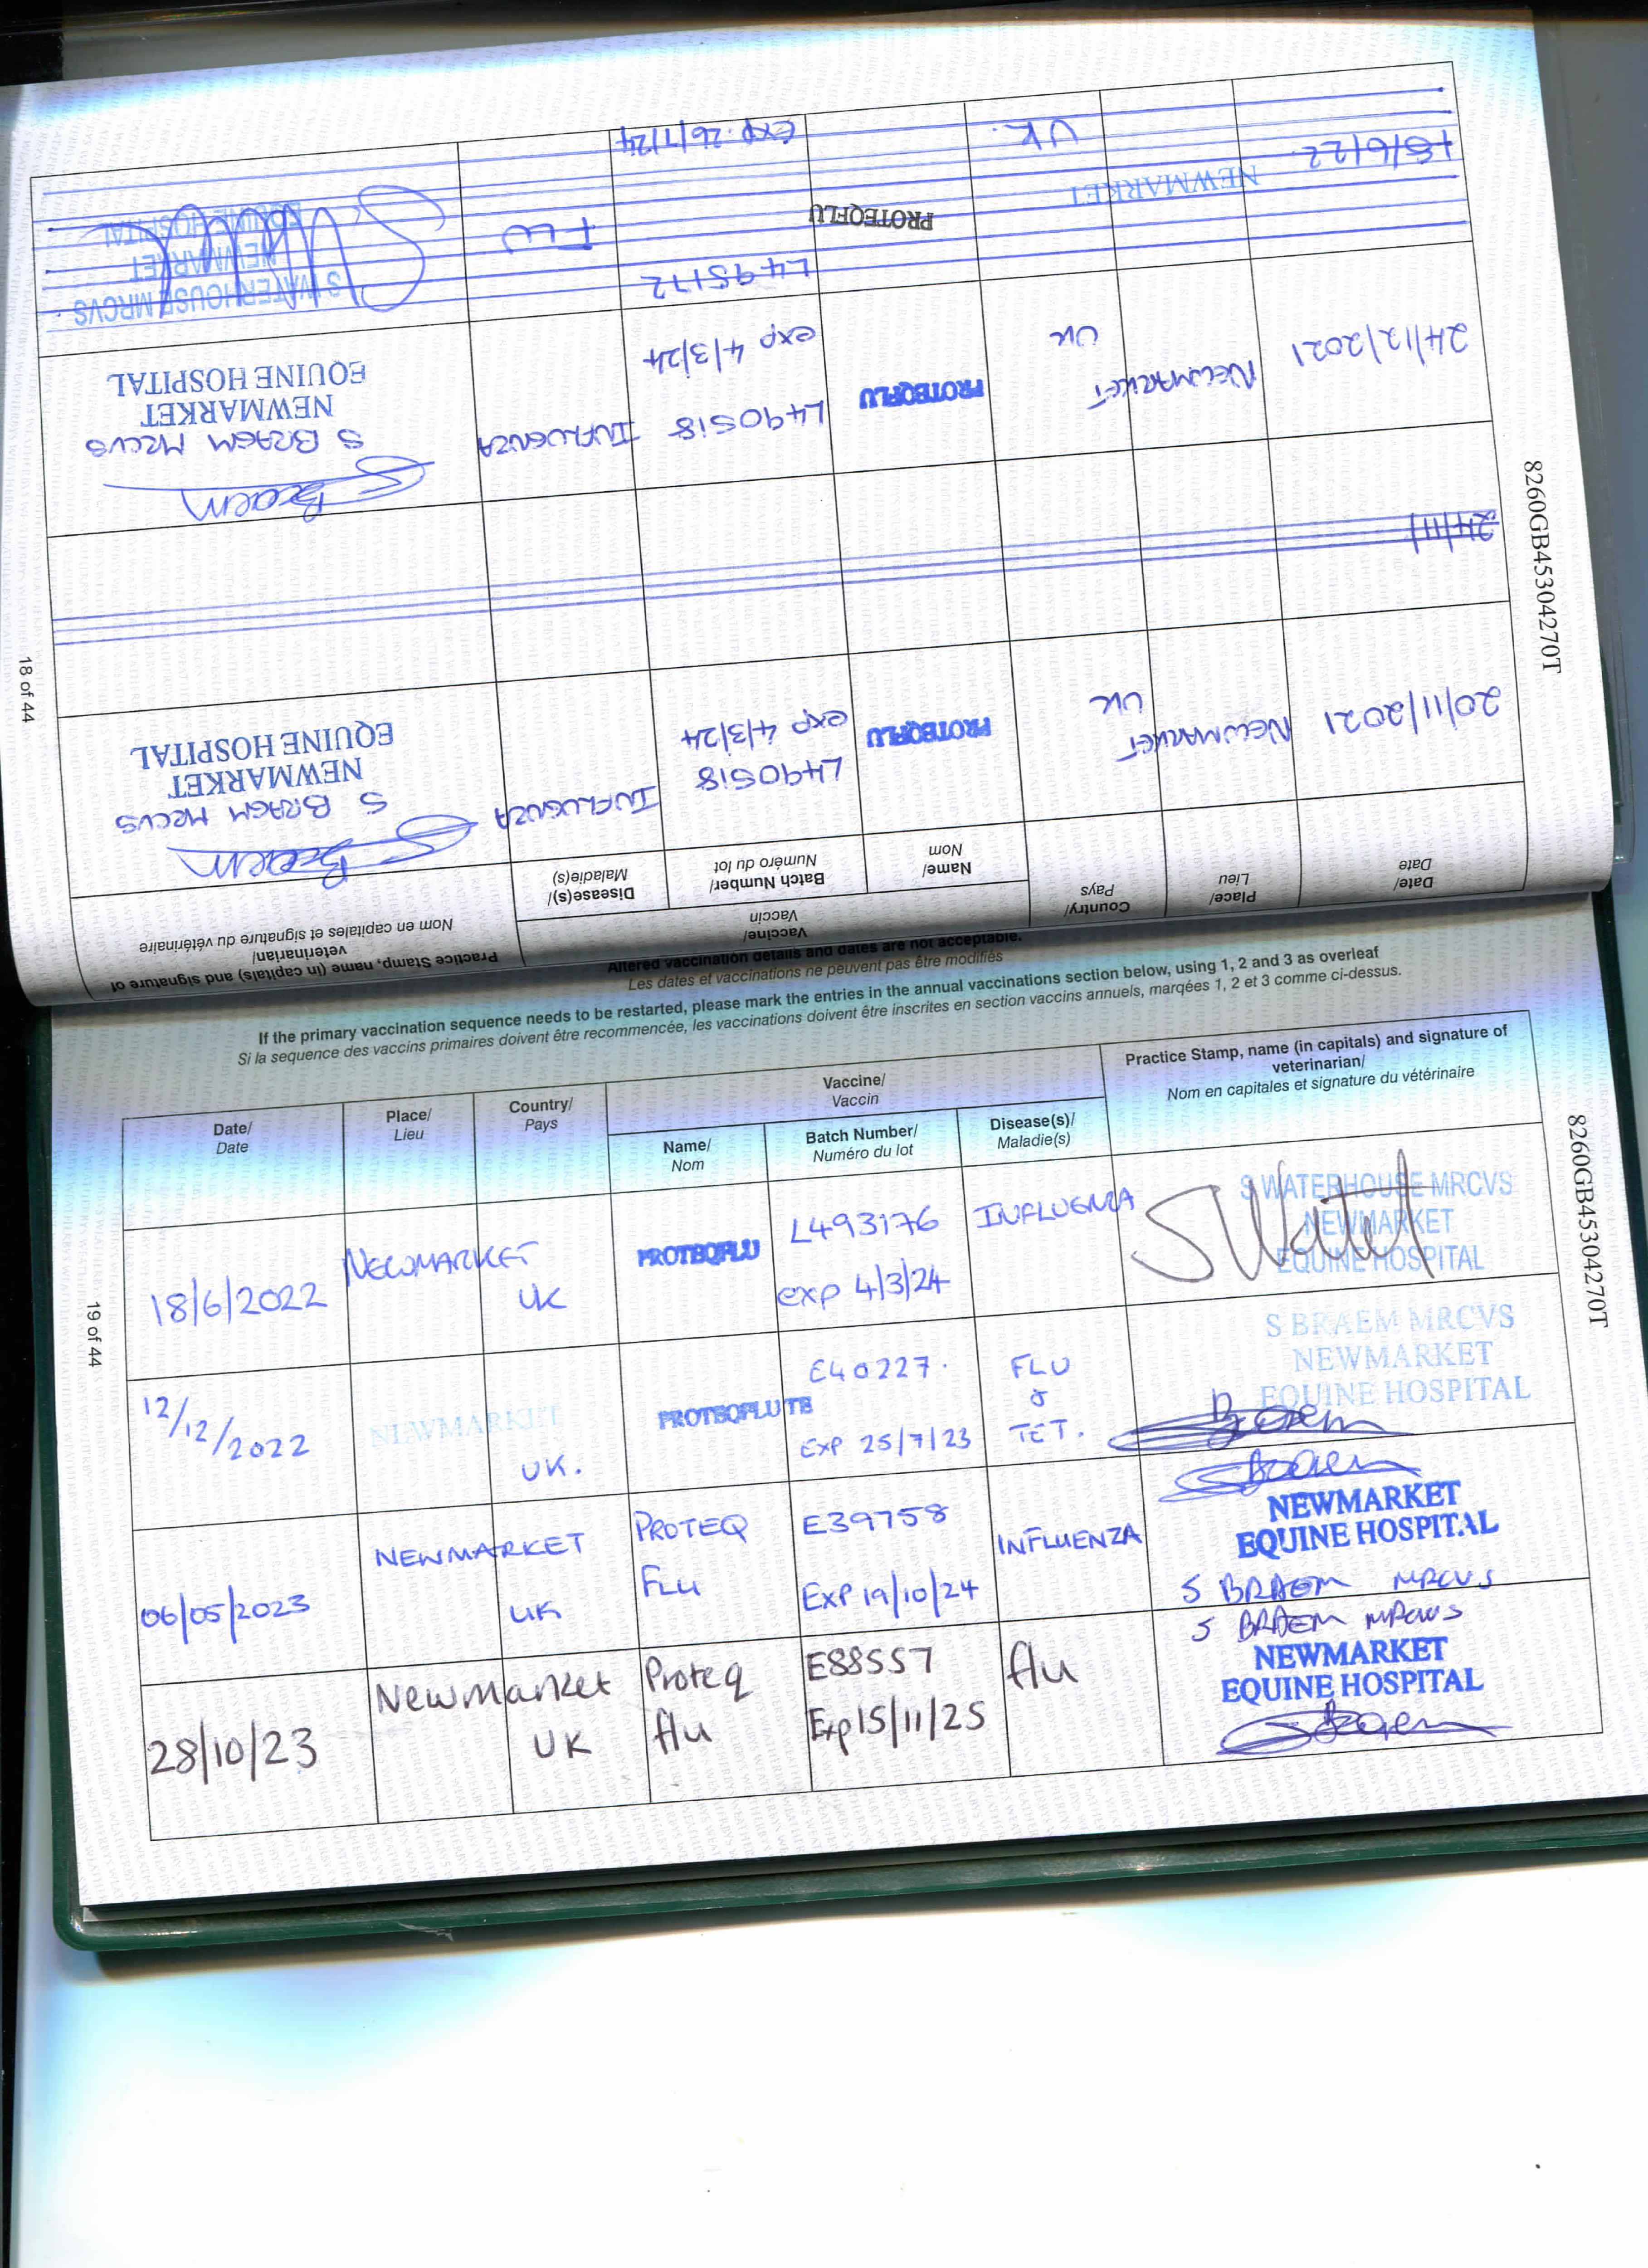 Date/
Date
Place/
Lieu
Country/
Pays
Vaccine/
Vaccin
Name/
Nom
Batch Number/
Numéro du lot
Disease(s)/
Maladie(s)
Practice Stamp, name (in capitals) and signature of
veterinarian/
Nom en capitales et signature du vétérinaire
20/11/2021
NEWMARKET
UK
PROTEQFLU
L490518
exp 4/3/24
INFLUENZA
Braem
S BRAEM MRCVS
NEWMARKET
EQUINE HOSPITAL
24/11/
24/12/2021
NEWMARKET
UK
PROTEQFLU
L490518
exp 4/3/24
INFLUENZA
Braem
S BRAEM MRCVS
NEWMARKET
EQUINE HOSPITAL
18/6/22
NEWMARKET
UK.
PROTEQFLU
L495172
exp. 26/7/24
FLU
S WATERHOUSE MRCVS
NEWMARKET
EQUINE HOSPITAL
8260GB45304270T
18 of 44
Altered vaccination details and dates are not acceptable.
Les dates et vaccinations ne peuvent pas être modifiés
If the primary vaccination sequence needs to be restarted, please mark the entries in the annual vaccinations section below, using 1, 2 and 3 as overleaf
Si la sequence des vaccins primaires doivent être recommencée, les vaccinations doivent être inscrites en section vaccins annuels, marqées 1, 2 et 3 comme ci-dessus.
Date/
Date
Place/
Lieu
Country/
Pays
Vaccine/
Vaccin
Name/
Nom
Batch Number/
Numéro du lot
Disease(s)/
Maladie(s)
Practice Stamp, name (in capitals) and signature of
veterinarian/
Nom en capitales et signature du vétérinaire
18/6/2022
NEWMARKET
UK
PROTEQFLU
L493176
exp 4/3/24
INFLUENZA
S WATERHOUSE MRCVS
NEWMARKET
EQUINE HOSPITAL
12/12/2022
NEWMARKET
UK.
PROTEQFLU TE
E40227.
Exp 25/7/23
FLU
&
TET.
S BRAEM MRCVS
NEWMARKET
EQUINE HOSPITAL
Braem
06/05/2023
NEWMARKET
UK
PROTEQ
FLU
E39758
Exp 19/10/24
INFLUENZA
Braem
NEWMARKET
EQUINE HOSPITAL
S BRAEM MRCVS
28/10/23
Newmarket
UK
Proteq
flu
E88557
Exp 15/11/25
flu
S BRAEM MRCVS
NEWMARKET
EQUINE HOSPITAL
Braem
8260GB45304270T
19 of 44